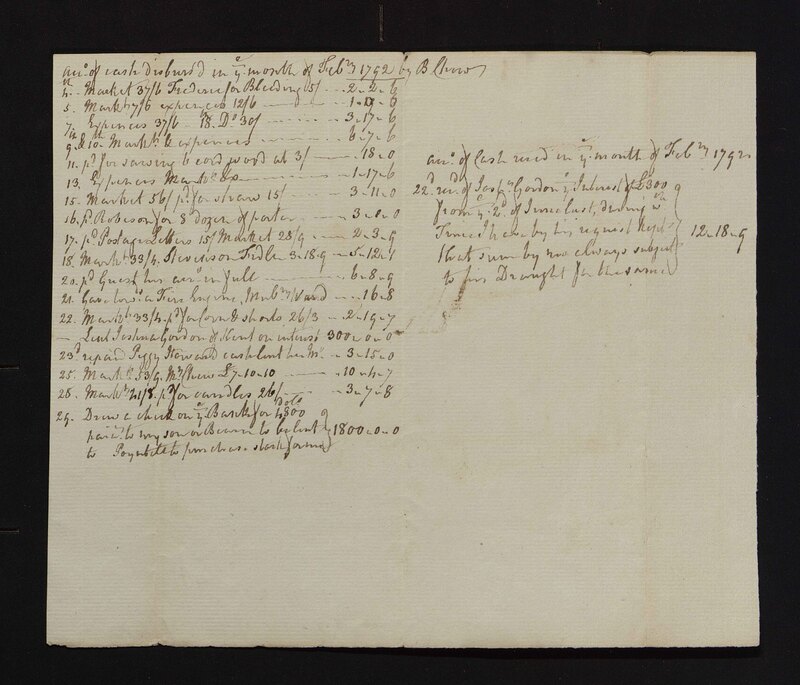 acc.t of cash disburs'd in y.e month of Feb.ry 1792 by B Chew
4.th Market 37/6 Frederic for Bleeding 5/ 2.. 2.. 6
5. Mark.t 7/6 expences 12/6 1.. 0.. 0
7. Expences 37/6 18. D.o 30/ 3.. 17.. 6
9. & 10.th Mark.t & expences 6.. 7.. 6
11. p.d for sawing 6 cord wood at 3/ .. 18.. 0
13. Expences Mark.t &c 1.. 17.. 6
15. Market 56/ p.d for straw 15/ 3.. 11.. 0
16. p.d Robeson for 3 dozen of porter 3.. 0.. 0
17. p.d Postage Letters 15/ Market 28/9 2.. 3.. 9
18. Mark.t 33/4. Stevenson Fedle 3.. 18.. 9 5.. 12.. 1
20. p.d Guest his acc.t in full 6.. 8.. 9
21. Gave tow.ds a Fire Engine, Mulb.y Ward .. 16.. 8
22. Mark.t 33/4. p.d for Corn & shorts 26/3 2.. 19.. 7
Lent Joshua Gordon of Kent on interest 300.. 0.. 0
23.d repaid Peggy Howard cash lent her M. 3.. 15.. 0
25. Mark.t 53/9. M.rs Chew £7.. 10.. 10 10.. 4.. 7
28. Mark.t 41/8. p.d for candles 26/ 3.. 7.. 8
29. Drew a check on y.e Bank for 4800 Dolls
paid to my son or Bearer to be lent 1800.. 0.. 0
to Poyntell to purchase stock for me
acc.t of Cash reced in y.e month of Feb.ry 1792
22.d rec.d of Jos. Gordon y.e Interest of £300
from y.e 2.d of June last, during w.ch
Time I have by his request kept 12.. 18.. 9
that sum by me always subject
to his Draught for the same